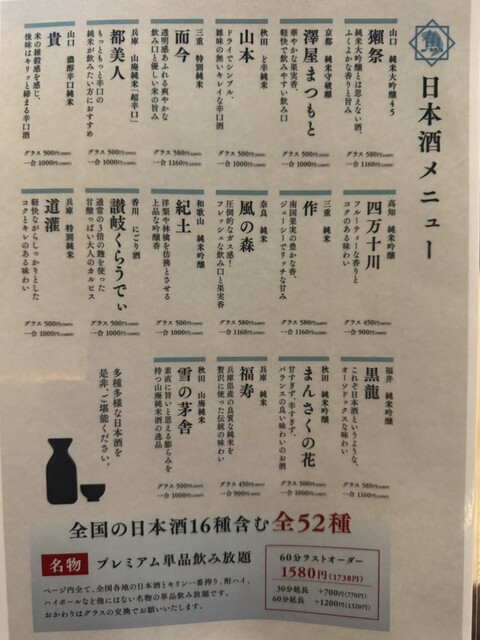 魚
日本酒メニュー
山口 純米大吟醸45
獺祭
純米大吟醸とは思えない酒、
ふくよかな香りと旨み
グラス 580円
一合 1160円
京都 純米守破離
澤屋まつもと
華やかな果実香、
軽快で飲みやすい飲み口
グラス 500円
一合 1000円
秋田 ど辛純米
山本
ドライでシンプル。
雑味の無いキレイな辛口酒
グラス 500円
一合 1000円
三重 特別純米
而今
透明感あふれる爽やかな
飲み口と優しい米の旨み
グラス 580円
一合 1160円
兵庫 山廃純米「超辛口」
都美人
もっともっと辛口の
純米が飲みたい方におすすめ
グラス 500円
一合 1000円
山口 濃醇辛口純米
貴
米の雑穀感を感じ、
後味はキリッと締まる辛口酒
グラス 500円
一合 1000円
高知 純米吟醸
四万十川
フルーティーな香りと
コクのある味わい
グラス 450円
一合 900円
三重 純米
作
南国果実の豊かな香、
ジューシーでリッチな甘み
グラス 580円
一合 1160円
奈良 純米
風の森
圧倒的なガス感!
フレッシュな飲み口と果実香
グラス 580円
一合 1160円
和歌山 純米吟醸
紀土
洋梨や林檎を彷彿とさせる
上品な吟醸香
グラス 500円
一合 1000円
香川 にごり酒
讃岐くらうでぃ
通常の3倍の麹を使った
甘酸っぱい大人のカルピス
グラス 500円
一合 1000円
兵庫 特別純米
道灌
軽快ながらしっかりとした
コクとキレのある味わい
グラス 500円
一合 1000円
福井 純米吟醸
黒龍
これぞ日本酒というような、
オーソドックスな味わい
グラス 580円
一合 1160円
秋田 純米吟醸
まんさくの花
甘すぎず、辛すぎず、
バランスの良い味わいのお酒
グラス 500円
一合 1000円
兵庫 純米
福寿
兵庫県産の良質な純米を
贅沢に使った伝統の味わい
グラス 450円
一合 900円
秋田 山廃純米
雪の茅舎
素直に旨いと思える膨らみを
持つ山廃純米酒の逸品
グラス 500円
一合 1000円
多種多様な日本酒を
是非、ご堪能ください。
全国の日本酒16種含む全52種
名物 プレミアム単品飲み放題
ページ内全て、全国各地の日本酒とキリン一番搾り、酎ハイ、
ハイボールなど他にはない名物の単品飲み放題です。
おかわりはグラスの交換でお願いいたします。
60分ラストオーダー
1580円(1738円)
30分延長 +700円(770円)
60分延長 +1200円(1320円)